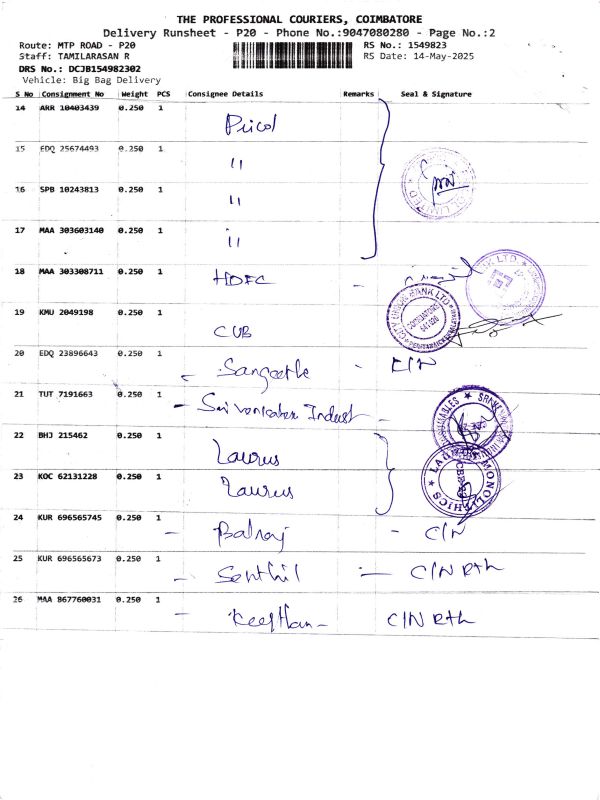 THE PROFESSIONAL COURIERS, COIMBATORE
Delivery Runsheet - P20 - Phone No.:9047080280 - Page No.:2
Route: MTP ROAD - P20
RS No.: 1549823
Staff: TAMILARASAN R
RS Date: 14-May-2025
DRS No.: DCJB154982302
Vehicle: Big Bag Delivery
S No Consignment No Weight PCS Consignee Details Remarks Seal & Signature
14 ARR 10403439 0.250 1
15 EDQ 25674493 0.250 1 "
16 SPB 10243813 0.250 1 "
17 MAA 303603140 0.250 1 "
18 MAA 303308711 0.250 1 HDFC -
19 KMU 2049198 0.250 1 CUB
CITY UNION BANK LTD
COIMBATORE
641
20 EDQ 23896643 0.250 1 - Sangeetha - C/N
21 TUT 7191663 0.250 1 - Indust -
22 BHJ 215462 0.250 1 Laurus
23 KOC 62131228 0.250 1 Laurus
24 KUR 696565745 0.250 1 - Balraj - C/N
25 KUR 696565673 0.250 1 - Senthil - C/N Rth
26 MAA 867760031 0.250 1 - C/N Rth